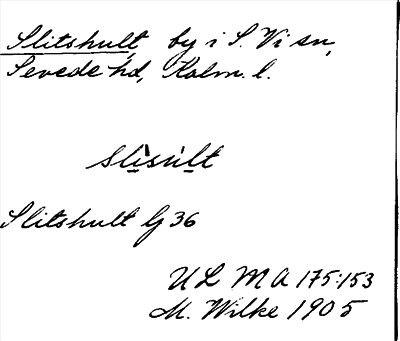 Slitshult, by i S. Vi sn,
Sevede hd, Kalm. l.
slìsu̇̀lt
Slitshult Gj 36
ULMA 175:153
M. Wilke 1905